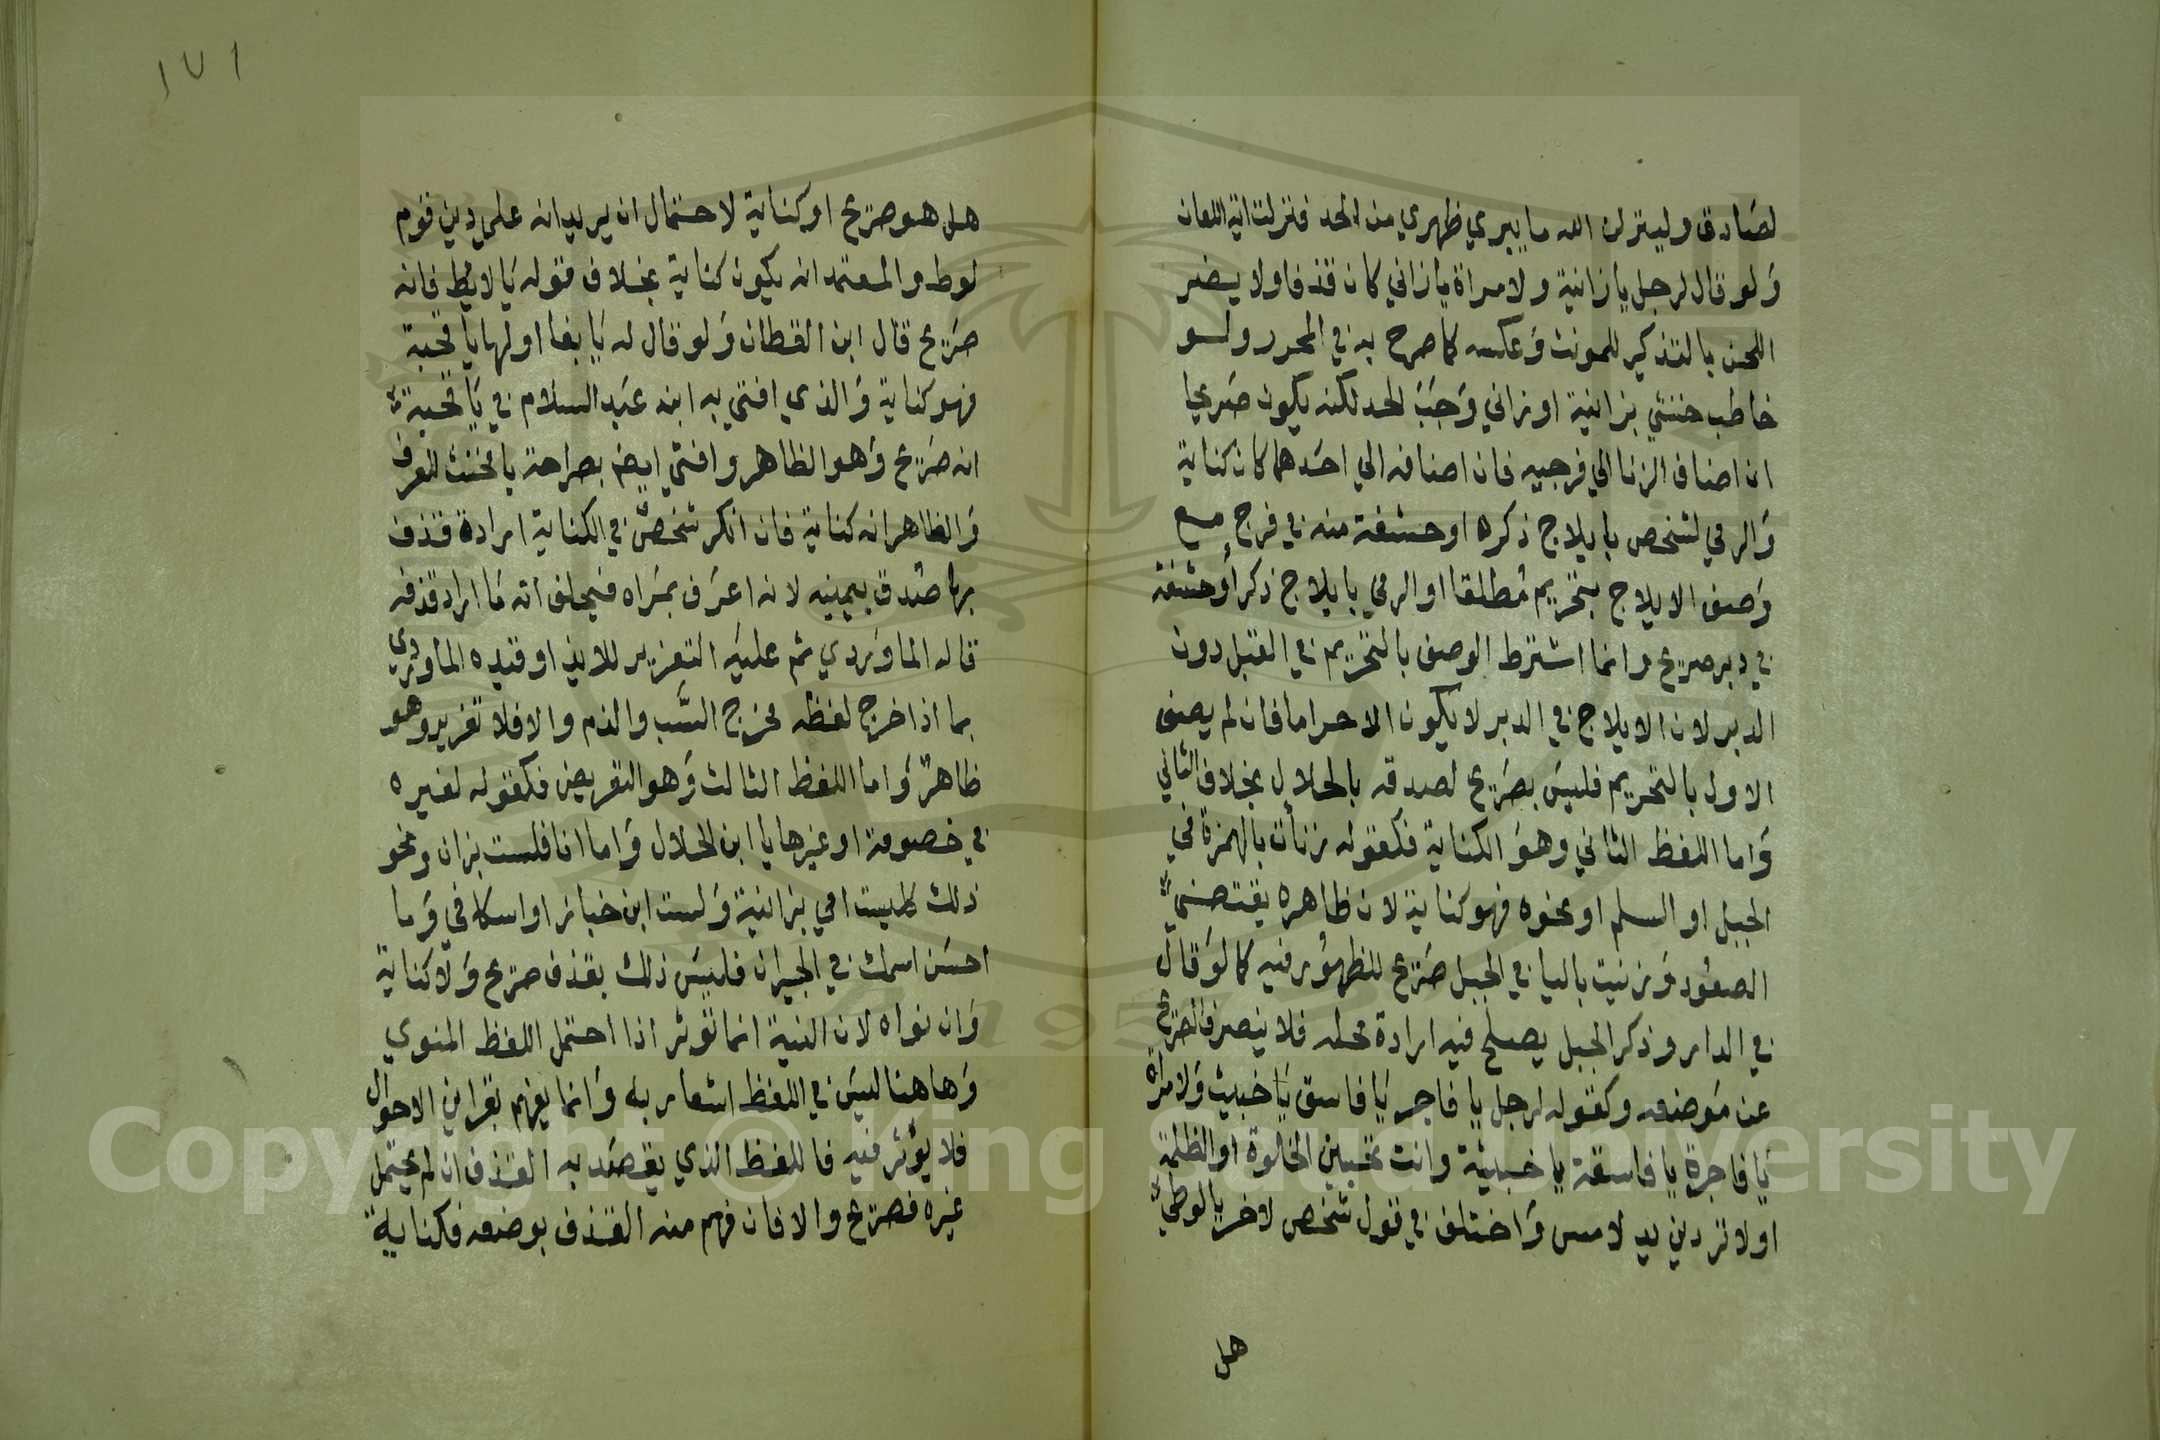 لصادق ولينزلن الله ما يبري ظهري من الحد فنزلت اية اللعان
ولو قال لرجل يا زانية ولامراة يا زاني كان قذفا ولا يضر
اللحن بالتذكير للمونث وعكسه كما صرح به في المحرر ولو
خاطب خنثي بزانية او زاني وجب الحد لكنه يكون صريحا
ان اضاف الزنا الي فرجيه فان اضافه الي احدهما كان كناية
والرمي لشخص بايلاج ذكره او حشفة منه في فرج مع
وصف الايلاج بتحريم مطلقا او الرمي بايلاج ذكر او حشفة
في دبر صريح وانما اشترط الوصف بالتحريم في القبل دون
الدبر لان الايلاج في الدبر لا يكون الا حراما فان لم يصف
الاول بالتحريم فليس بصريح لصدقه بالحلال بخلاف الثاني
واما اللفظ الثاني وهو الكناية فكقوله زنأت بالهمزة في
الجبل او السلم او نحوه فهو كناية لان ظاهره يقتضي
الصعود وزنيت باليا في الجبل صريح للظهور فيه كما لو قال
في الدار وذكر الجبل يصلح فيه ارادة محله فلا ينصرف الصريح
عن موضعه وكقوله لرجل يا فاجر يا فاسق يا خبيث ولامراة
يا فاجرة يا فاسقة يا خبيثة وانت تحبين الخلوة او الظلمة
او لا تردين يد لامس واختلف في قول شخص لاخر يا لوطي
هل
١٧١
هل هو صريح او كناية لاحتمال ان يريد انه علي دين قوم
لوط والمعتمد انه يكون كناية بخلاف قوله يا لايط فانه
صريح قال ابن القطان ولو قال له يا بغا او لها يا قحبة
فهو كناية والذي افتي به ابن عبد السلام في يا قحبة
انه صريح وهو الظاهر وافتي ايضا بصراحة يا مخنث للعرف
والظاهر انه كناية فان انكر شخص في الكناية ارادة قذف
بها صدق بيمينه لانه اعرف بمراه فيحلف انه ما اراد قذفه
قاله الماوردي ثم عليه التعزير للايذا وقيده الماوردي
بما اذا خرج لفظه مخرج السب والذم والا فلا تعزير وهو
ظاهر واما اللفظ الثالث وهو التعريض فكقوله لغيره
في خصومة او غيرها يا ابن الحلال واما انا فلست بزان ونحو
ذلك كليست امي بزانية ولست ابن خباز او اسكافي وما
احسن اسمك في الجيران فليس ذلك بقذف صريح ولا كناية
وان نواه لان النية انما توثر اذا احتمل اللفظ المنوي
وهاهنا ليس في اللفظ اشعار به وانما يفهم بقراين الاحوال
فلا يؤثر فيه فاللفظ الذي يقصد به القذف ان لم يحتمل
غيره فصريح والا فان فهم منه القذف بوضعه فكناية
Copyright © King Saud University
1957